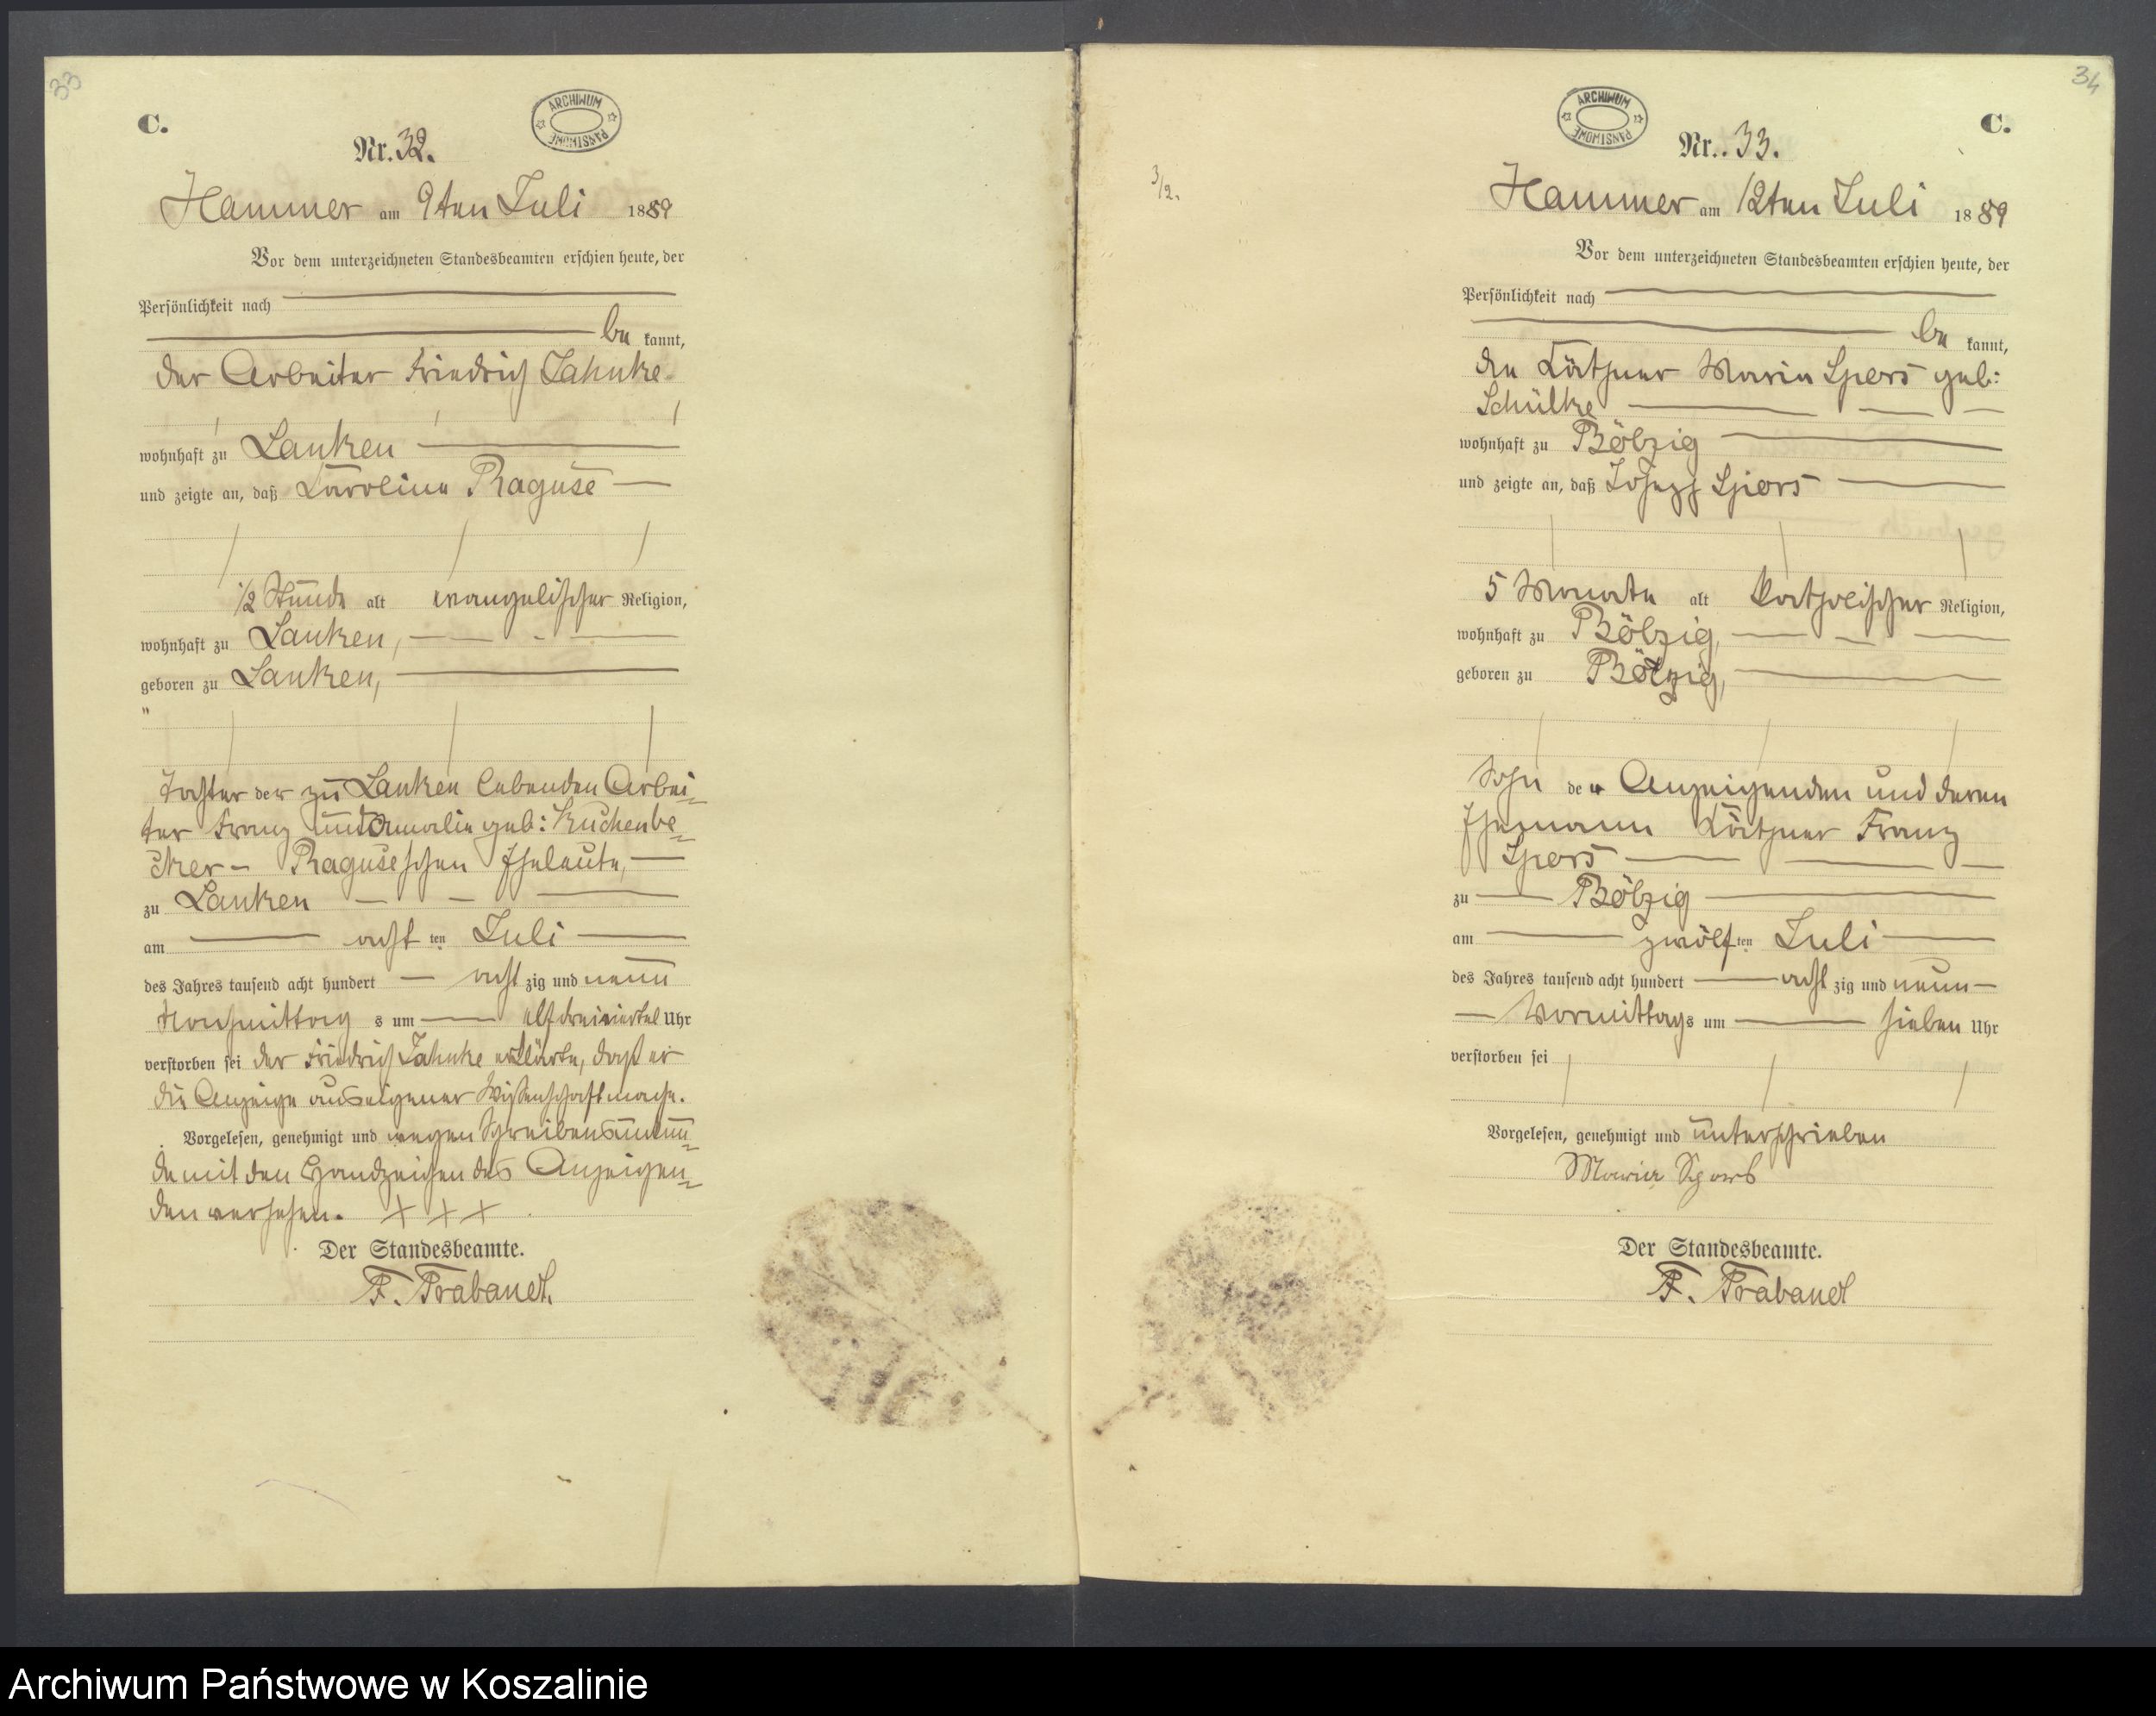 33
C.
ARCHIWUM PAŃSTWOWE
Nr. 32.
Hammer am 9ten Juli 1889
Vor dem unterzeichneten Standesbeamten erschien heute, der
Persönlichkeit nach
be kannt,
der Arbeiter Friedrich Jahnke
wohnhaft zu Lanken
und zeigte an, daß Caroline Raguse
1/2 Stunde alt evangelischer Religion,
wohnhaft zu Lanken,
geboren zu Lanken,
Tochter der zu Lanken lebenden Arbei=
ter Franz und Amalie geb: Kuchenbe=
cker - Raguseschen Eheleute,
zu Lanken
am acht ten Juli
des Jahres tausend acht hundert acht zig und neun
Nachmittag s um elf dreiviertel Uhr
verstorben sei der Friedrich Jahnke erklärte, daß er
die Anzeige aus eigener Wissenschaft mache.
Vorgelesen, genehmigt und wegen Schreibensunkun=
de mit den Handzeichen des Anzeigen=
den versehen. + + +
Der Standesbeamte.
F. Trabandt.
34
C.
ARCHIWUM PAŃSTWOWE
Nr. 33.
3/2.
Hammer am 12ten Juli 1889
Vor dem unterzeichneten Standesbeamten erschien heute, der
Persönlichkeit nach
be kannt,
die Käthner Maria Spors geb:
Schülke
wohnhaft zu Bölzig
und zeigte an, daß Joseph Spors
5 Monate alt katholischer Religion,
wohnhaft zu Bölzig,
geboren zu Bölzig,
Sohn der Anzeigenden und deren
Ehemann Käthner Franz
Spors
zu Bölzig
am zwölf ten Juli
des Jahres tausend acht hundert acht zig und neun
Vormittags um sieben Uhr
verstorben sei
Vorgelesen, genehmigt und unterschrieben
Maria Spors
Der Standesbeamte.
F. Trabandt
Archiwum Państwowe w Koszalinie